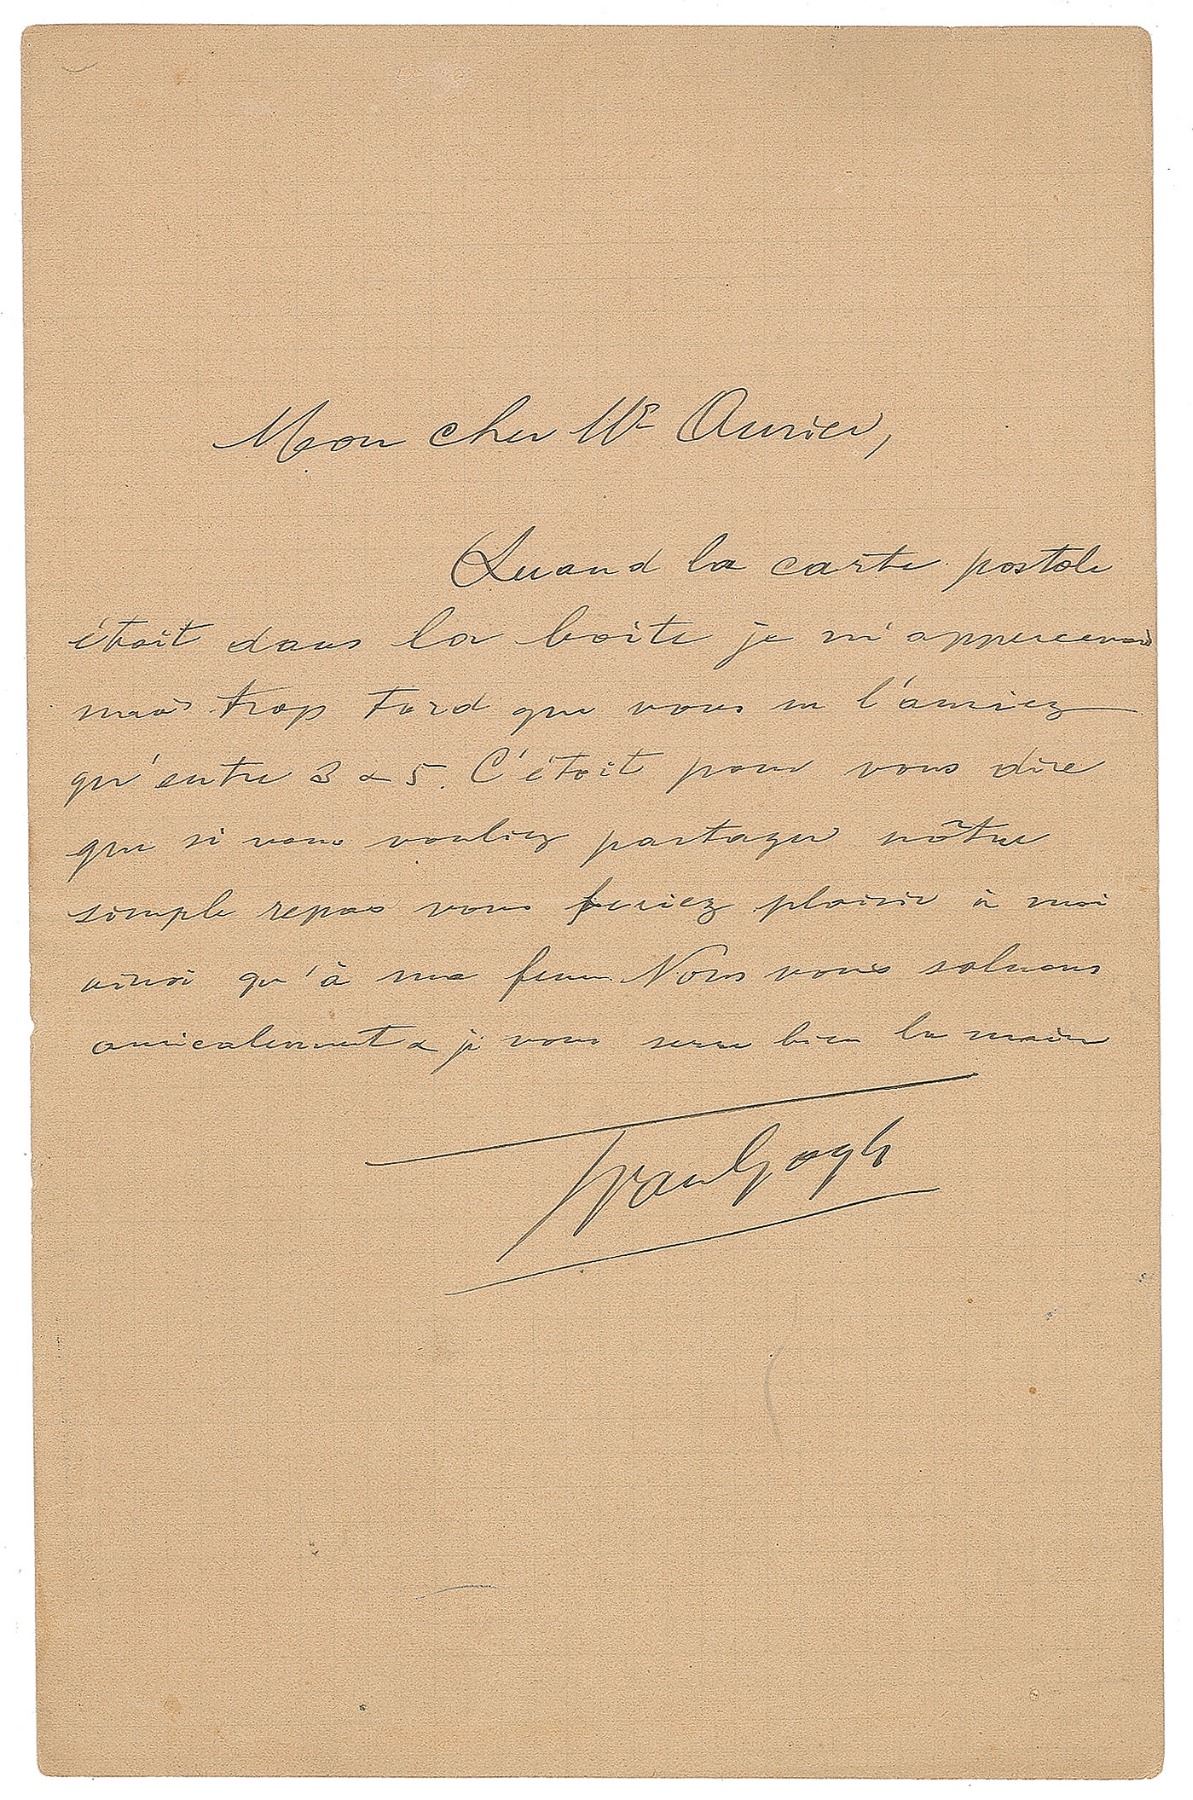 Mon cher Mr Aurier,
Quand la carte postale
était dans la boite je m'appercevais
mais trop tard que vous ne l'auriez
qu'entre 3 & 5. C'était pour vous dire
que si vous vouliez partager nôtre
simple repas vous feriez plaisir à moi
ainsi qu'à ma femme. Nous vous saluons
amicalement & je vous serre bien la main
TvanGogh